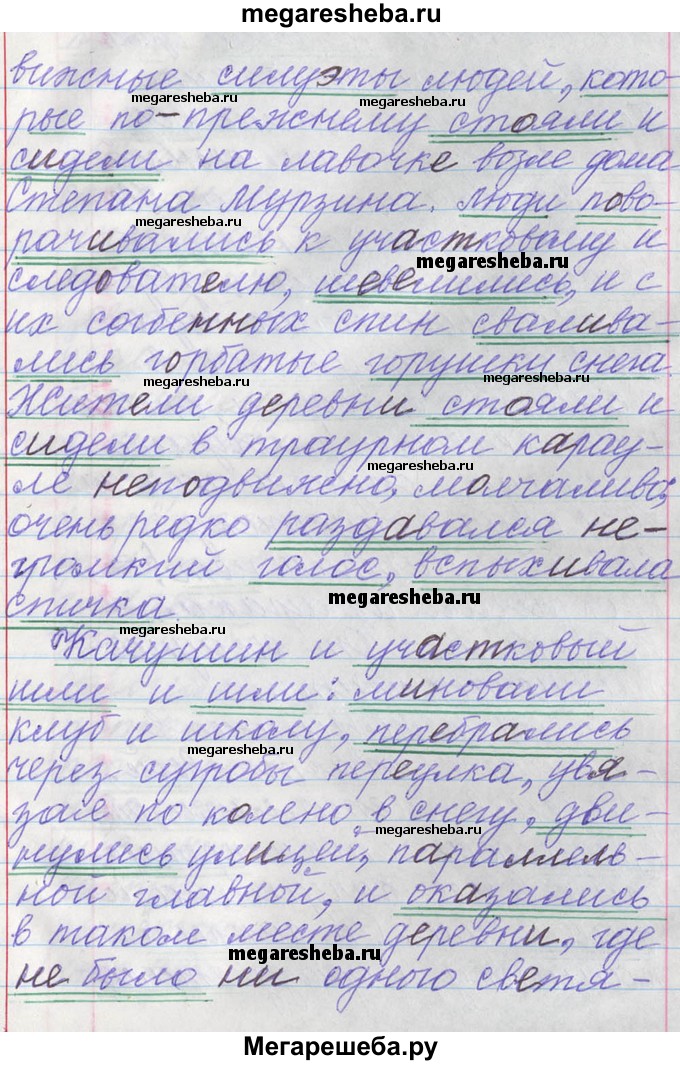 megaresheba.ru
вижные силуэты людей, кото-
megaresheba.ru
megaresheba.ru
рые по-прежнему стояли и
сидели на лавочке возле дома
Степана Мурзина. Люди пово-
megaresheba.ru
рачивались к участковому и
megaresheba.ru
следователю, шевелились, и с
их согбенных спин свалива-
лись горбатые горушки снега.
megaresheba.ru
megaresheba.ru
Жители деревни стояли и
сидели в траурном карау-
megaresheba.ru
ле неподвижно, молчаливо;
очень редко раздавался не-
громкий голос, вспыхивала
megaresheba.ru
спичка.
megaresheba.ru
Качушин и участковый
шли и шли: миновали
клуб и школу, перебрались
megaresheba.ru
через сугробы переулка, увя-
зая по колено в снегу, дви-
megaresheba.ru
нулись улицей, параллель-
ной главной, и оказались
в таком месте деревни, где
megaresheba.ru
не было ни одного светя-
megaresheba.ru
Мегарешеба.ру